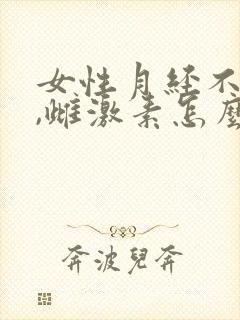 女性月经不
,雌激素怎麼
奔波兒奔